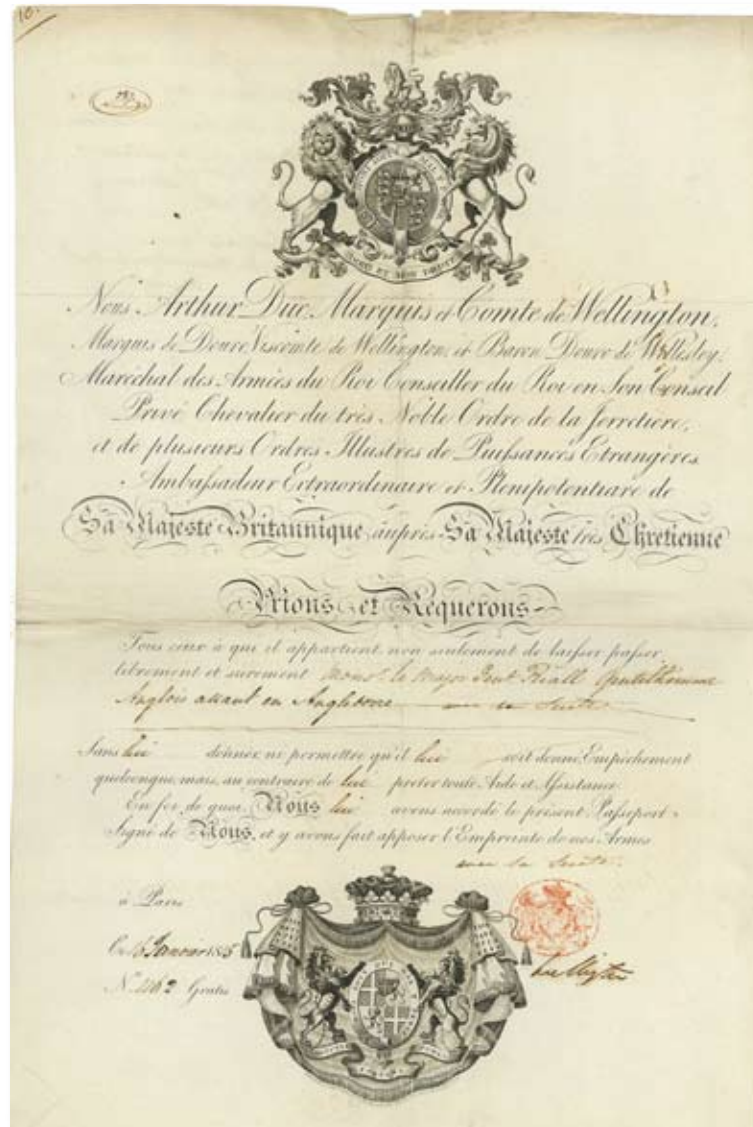 10.
Nous Arthur Duc, Marquis et Comte de Wellington,
Marquis de Douro, Viscomte de Wellington, et Baron Douro de Wellesley,
Maréchal des Armées du Roi Conseiller du Roi en Son Conseil
Privé Chevalier du très Noble Ordre de la Jarretiere,
et de plusieurs Ordres Illustres de Puissances Etrangères
Ambassadeur Extraordinaire et Plenipotentiare de
Sa Majeste Britannique, auprès Sa Majeste très Chretienne
Prions et Requerons
Tous ceux à qui il appartient non seulement de laisser passer
librement et surement Monsr. le Major Riall Gentilhomme
Anglois allant en Angleterre avec sa Suite
Sans lui donner ni permettre qu'il lui soit donné Empêchement
quelconque, mais, au contraire de lui prêter toute Aide et Assistance.
En foi de quoi Nous lui avons accordé le présent Passeport
Signé de Nous, et y avons fait apposer l'Empreinte de nos Armes
avec sa Suite.
à Paris
Ce 16 Janvier 1815
N. 1162 Gratis
Wellington